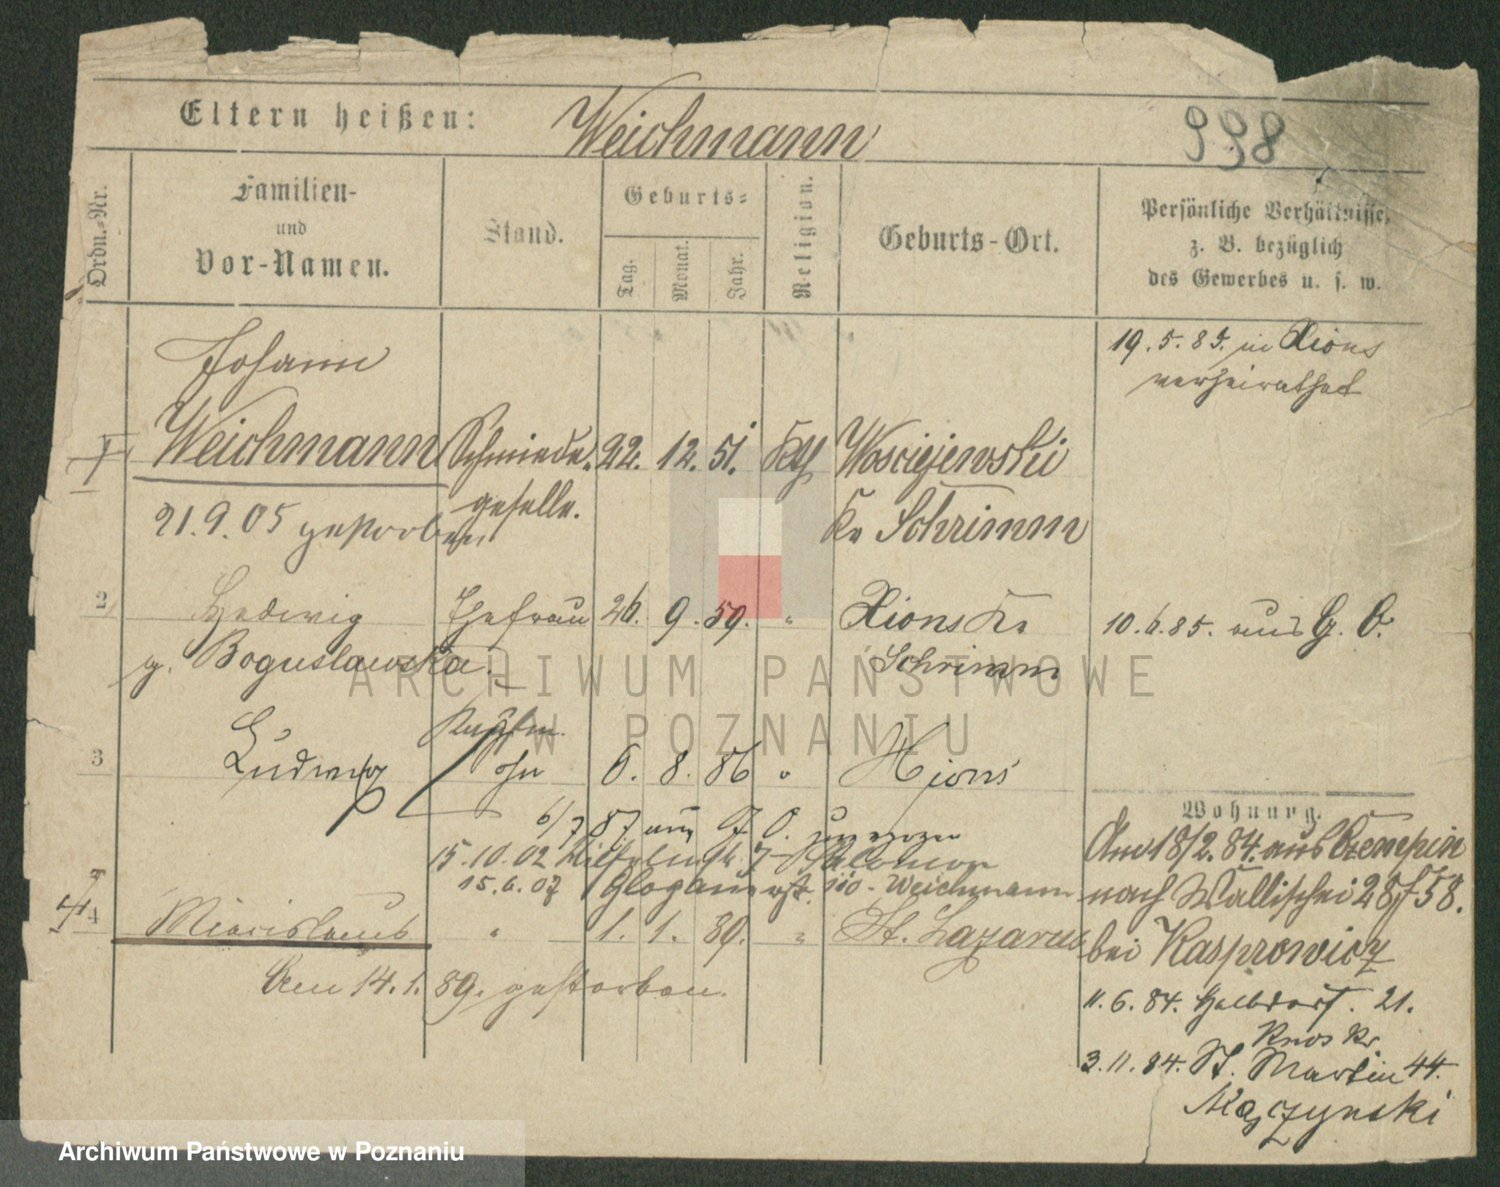 Eltern heißen: Weichmann 998
Ordn.-Nr.
Familien-
und
Vor-Namen.
Stand.
Geburts-
Tag.
Monat.
Jahr.
Religion.
Geburts-Ort.
Persönliche Verhältnisse,
z. B. bezüglich
des Gewerbes u. s. w.
19. 5. 85. in Xions
verheirathet
Johann
Weichmann Schmiede- 22. 12. 51. Kth Wosciejewski
geselle. Kr Schrimm
21.9.05 gestorben
2 Hedwig Ehefrau 26. 9. 59. " Xions Kr 10. 6. 85. aus G. O.
g. Boguslawska. Schrimm
3 Ludwig Sohn 6. 8. 86 " Xions
6/7 87. aus G O. zugezogen
15.10.02
15.6.07 Glogauerstr. 110 - Weichmann
4 Miecislaus " 1. 1. 89. " St. Lazarus
Am 14. 1. 89. gestorben.
Wohnung.
Am 18/2. 84. aus Czempin
nach Wallischei 28, 58.
bei Kasprowicz
11. 6. 84. Halbdorf. 21.
3. 11. 84. St. Martin 44.
Mączynski
ARCHIWUM PAŃSTWOWE
W POZNANIU
Archiwum Państwowe w Poznaniu